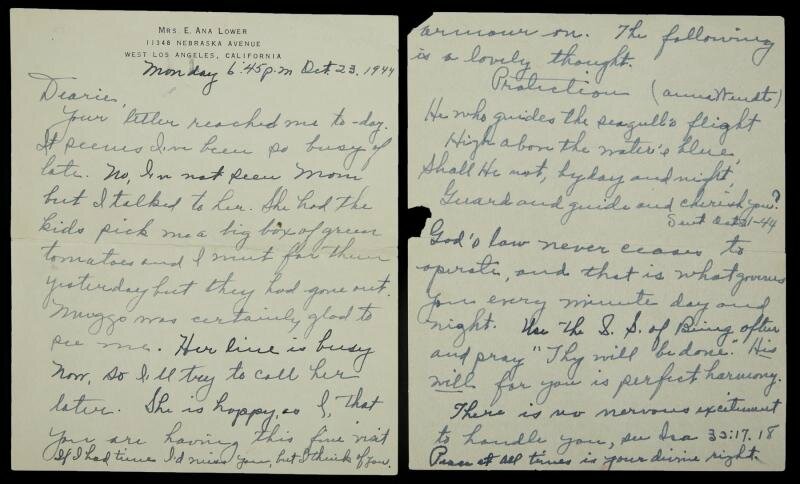 MRS. E. ANA LOWER
11348 NEBRASKA AVENUE
WEST LOS ANGELES, CALIFORNIA
Monday 6:45p.m Oct. 23, 1944
Dearies,
Your letter reached me to-day.
It seems I've been so busy of
late. No, I'm not seen Mom
but I talked to her. She had the
kids pick me a big box of green
tomatoes and I went for them
yesterday but they had gone out.
Muggs was certainly glad to
see me. Her line is busy
now, so I'll try to call her
later. She is happy, as I, that
you are having this fine visit
If I had time I'd miss you, but I think of you.
armour on. The following
is a lovely thought.
Protection (
He who guides the seagull's flight
High above the water's blue,
Shall He not, by day and night,
Guard and guide and cherish you?
Sent Oct 21-44
God's law never ceases to
operate, and that is what governs
you every minute day and
night. Use The S. S. of Being often
and pray "Thy will be done." His
will for you is perfect harmony.
There is no nervous excitement
to handle you, see Isa 32:17.18
Peace at all times is your divine right.